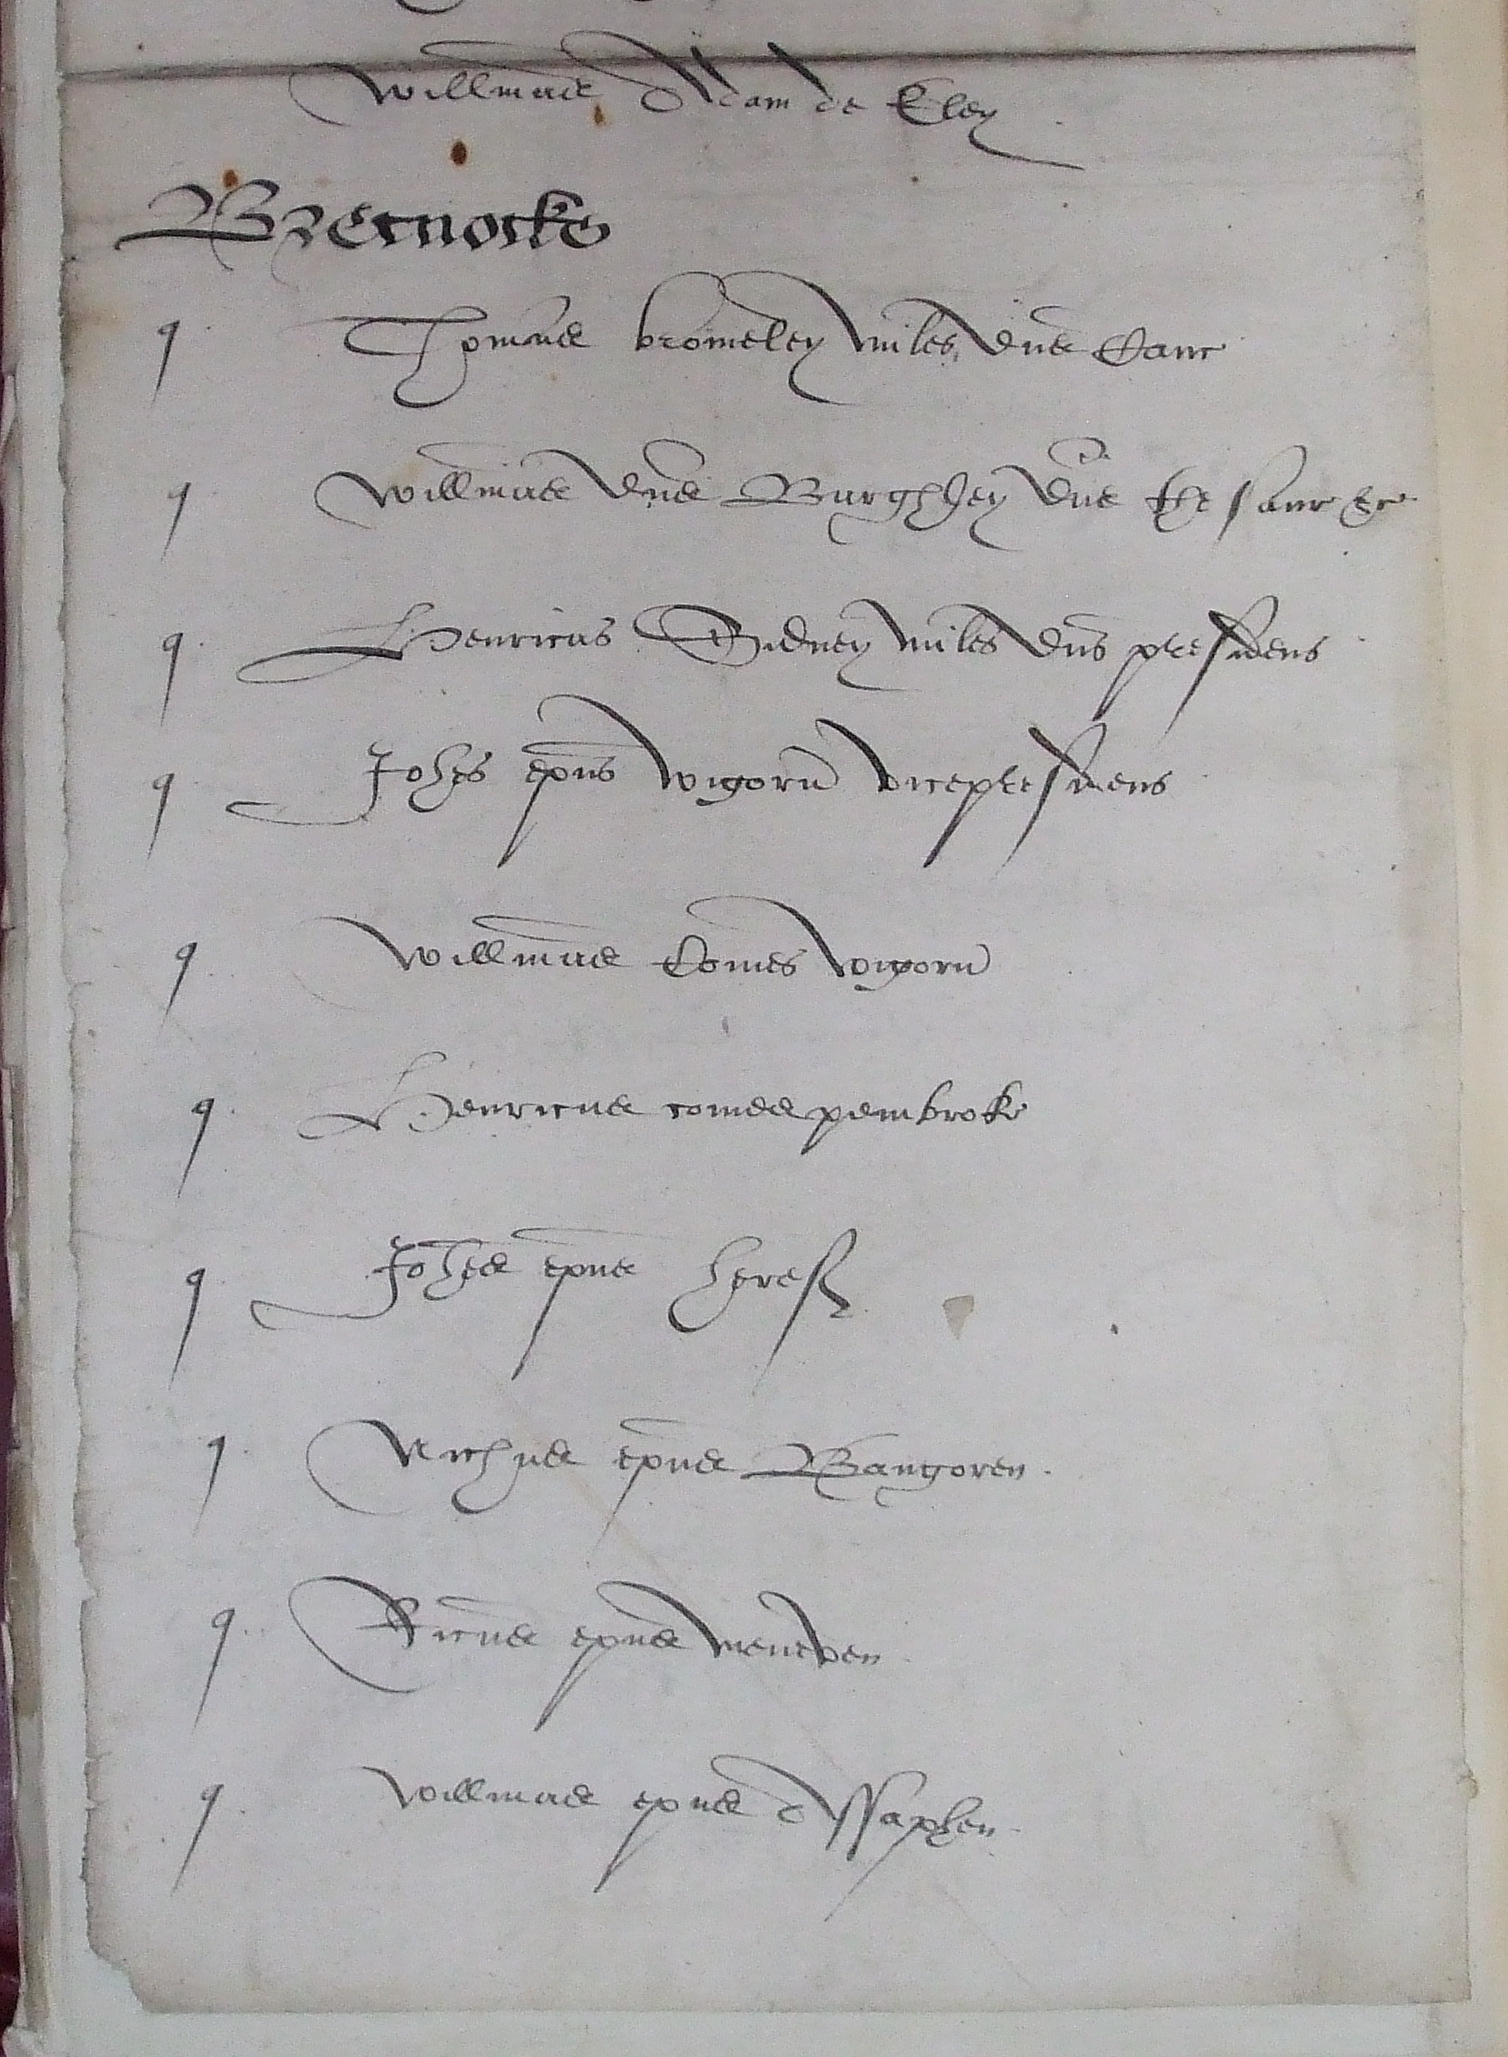 Willmus Adam de Eley
Brecnocke
q Thomas bromeley miles dns Canc
q Willmus dns Burghley dns thesaur &c
q Henricus Sidney miles dns presidens
q Johes epus wigorn vicepresidens
q Willmus Comes wigorn
q Henricus comes pembroke
q Johes epus heref
q Nichus epus Bangoren
q Ricus epus meneven
q Willmus epus Assaphen